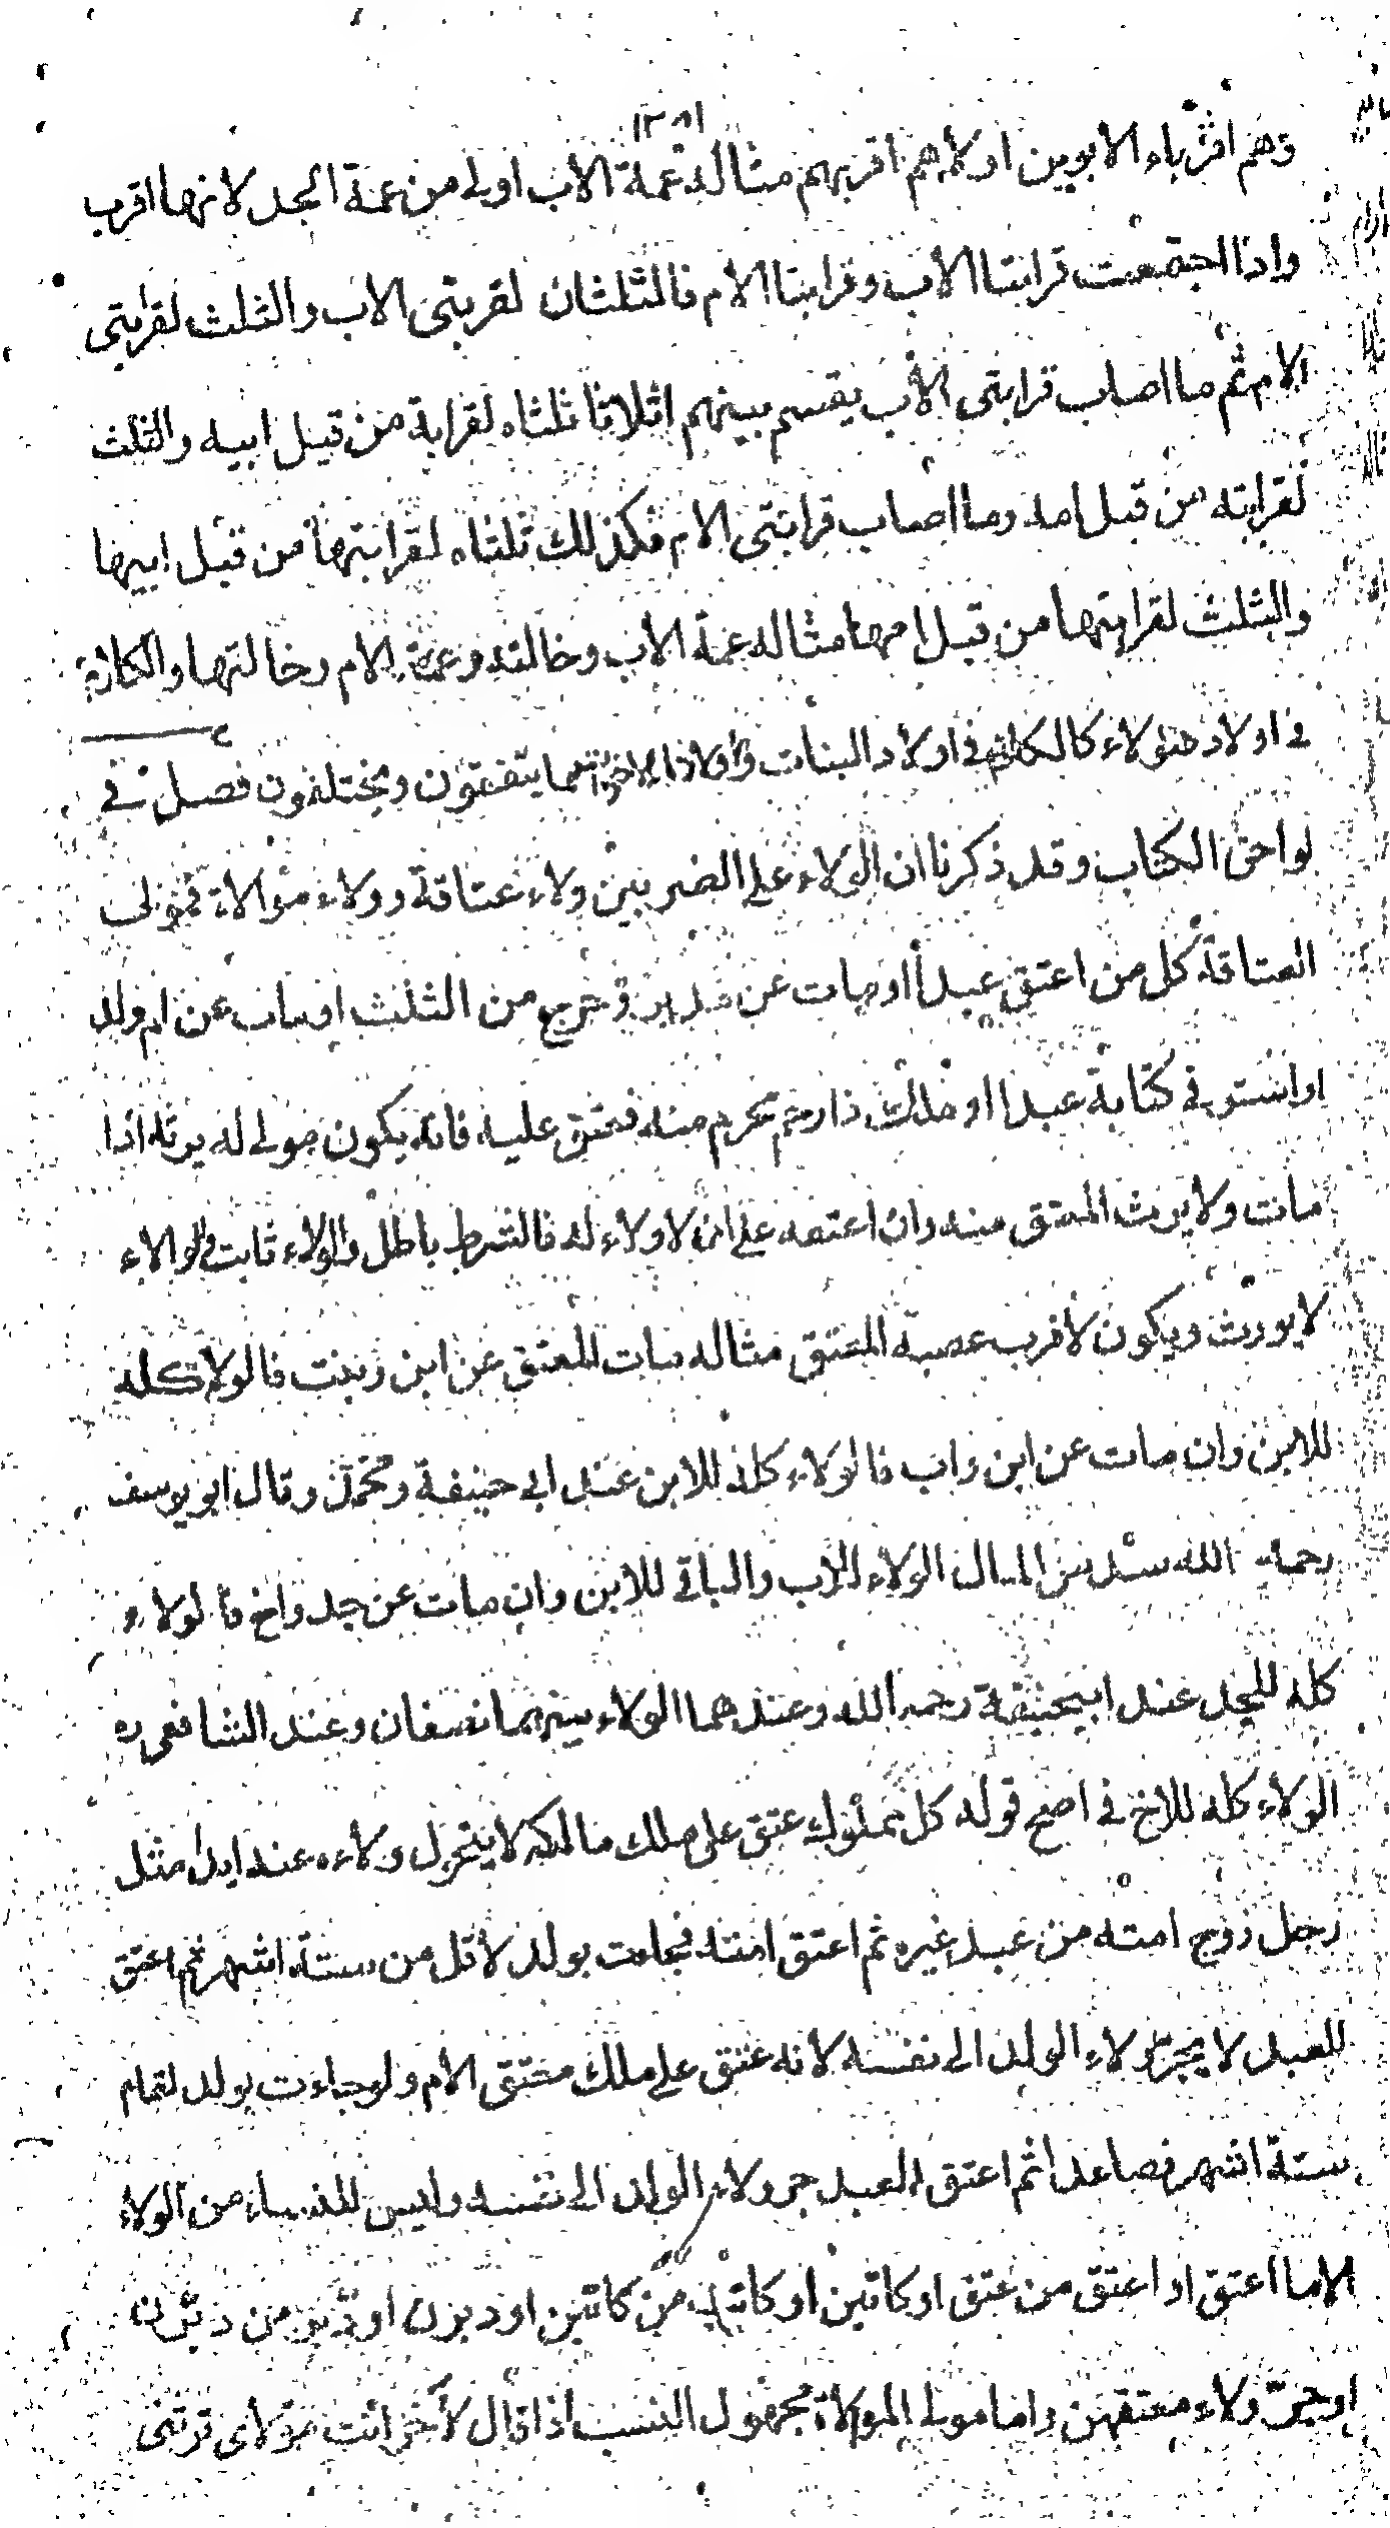 ١٢٨١
وهم اقرباء الابوين اولاهم اقربهم مثاله عمة الاب اولى من عمة الجد لانها اقرب
واذا اجتمعت قرابتا الاب وقرابتا الام فالثلثان لقربتى الاب والثلث لقرابتى
الام ثم ما اصاب قرابتى الاب يقسم بينهم اثلاثا ثلثاه لقرابة من قبل ابيه والثلث
لقرابته من قبل امه وما اصاب قرابتى الام فكذلك ثلثاه لقرابتها من قبل ابيها
والثلث لقرابتها من قبل امها مثاله عمة الاب وخالته وعمة الام وخالتها والكلام
فى اولاد هؤلاء كالكلام فى اولاد البنات واولاد الاخوات فيما يتفقون ويختلفون فصل فى
لواحق الكتاب وقد ذكرنا ان الولاء على الضربين ولاء عتاقة وولاء موالاة فمولى
العتاقة كل من اعتق عبدا او مات عن مدبر وخرج من الثلث او مات عن ام ولد
او استوفى كتابة عبدا او ملك ذا رحم محرم منه فعتق عليه فانه يكون مولى له يرثه اذا
مات ولا يرث المعتق منه وان اعتقه على ان لا ولاء له فالشرط باطل والولاء ثابت والولاء
لا يورث ويكون لاقرب عصبة المعتق مثاله مات المعتق عن ابن وبنت فالولاء كله
للابن وان مات عن ابن واب فالولاء كله للابن عند ابى حنيفة ومحمد وقال ابو يوسف
رحمه الله سدس المال الولاء للاب والباقى للابن وان مات عن جد واخ فالولاء
كله للجد عند ابيحنيفة رحمه الله وعندهما الولاء بينهما نصفان وعند الشافعى ره
الولاء كله للاخ فى اصح قوله كل مملوك عتق على ملك مالكه لا يتحول ولاءه عنه ابدا مثل
رجل زوج امته من عبد غيره ثم اعتق امته فجاءت بولد لاقل من ستة اشهر ثم اعتق
العبد لا يجر ولاء الولد الى نفسه لانه عتق على ملك معتق الام ولو جاءت بولد لتمام
ستة اشهر فصاعدا ثم اعتق العبد جر ولاء الولد الى نفسه وليس للنساء من الولاء
الا ما اعتق او اعتق من عتق او كاتبن او كاتب من كاتبن او دبرن او دبر من دبرن
او جر ولاء معتقهن واما مولى الموالاة مجهول النسب اذا قال لاخر انت مولاى ترثنى